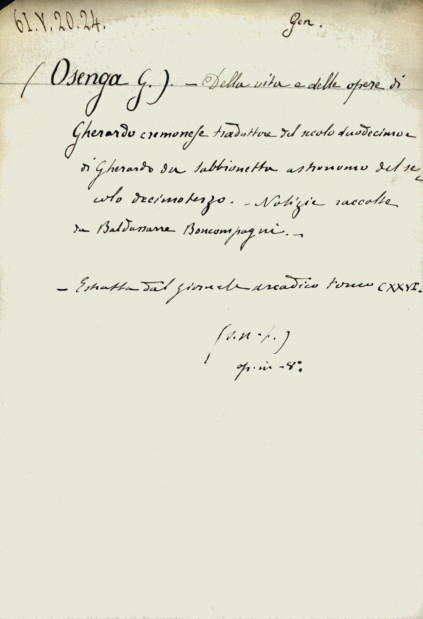 61.V.20.24.
Gen.
(Osenga G.). — Della vita e delle opere di
Gherardo cremonese traduttore del secolo duodecimo e
di Gherardo da Sabbionetta astronomo del se-
colo decimoterzo. — Notizie raccolte
da Baldassarre Boncompagni. —
— Estratta dal giornale arcadico tomo CXXVI.
(s.n.t.)
op. in-8°.